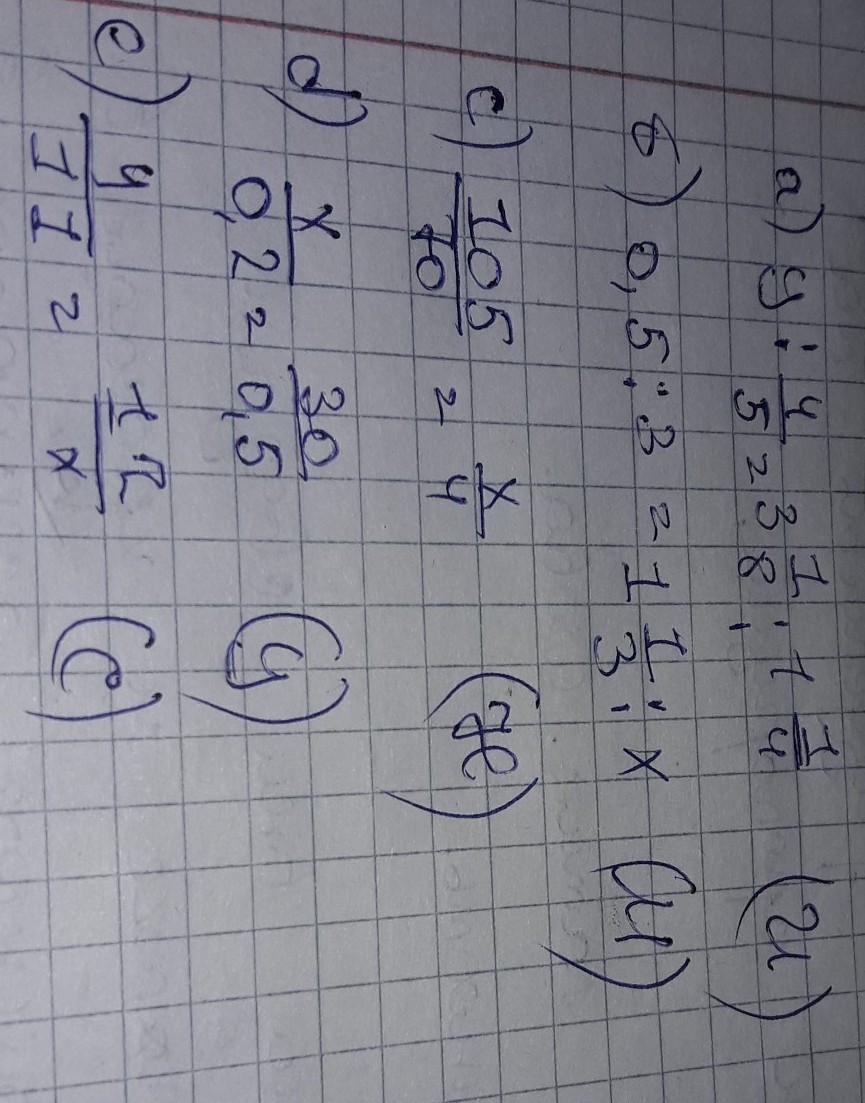 a) y : 4/5 = 3 1/8 : 1 1/4
б) 0,5 : 3 = 1 1/3 : x
c) 105/10 = x/4
d) x/0,2 = 30/0,5 (y)
e) 4/11 = 12/x (e)